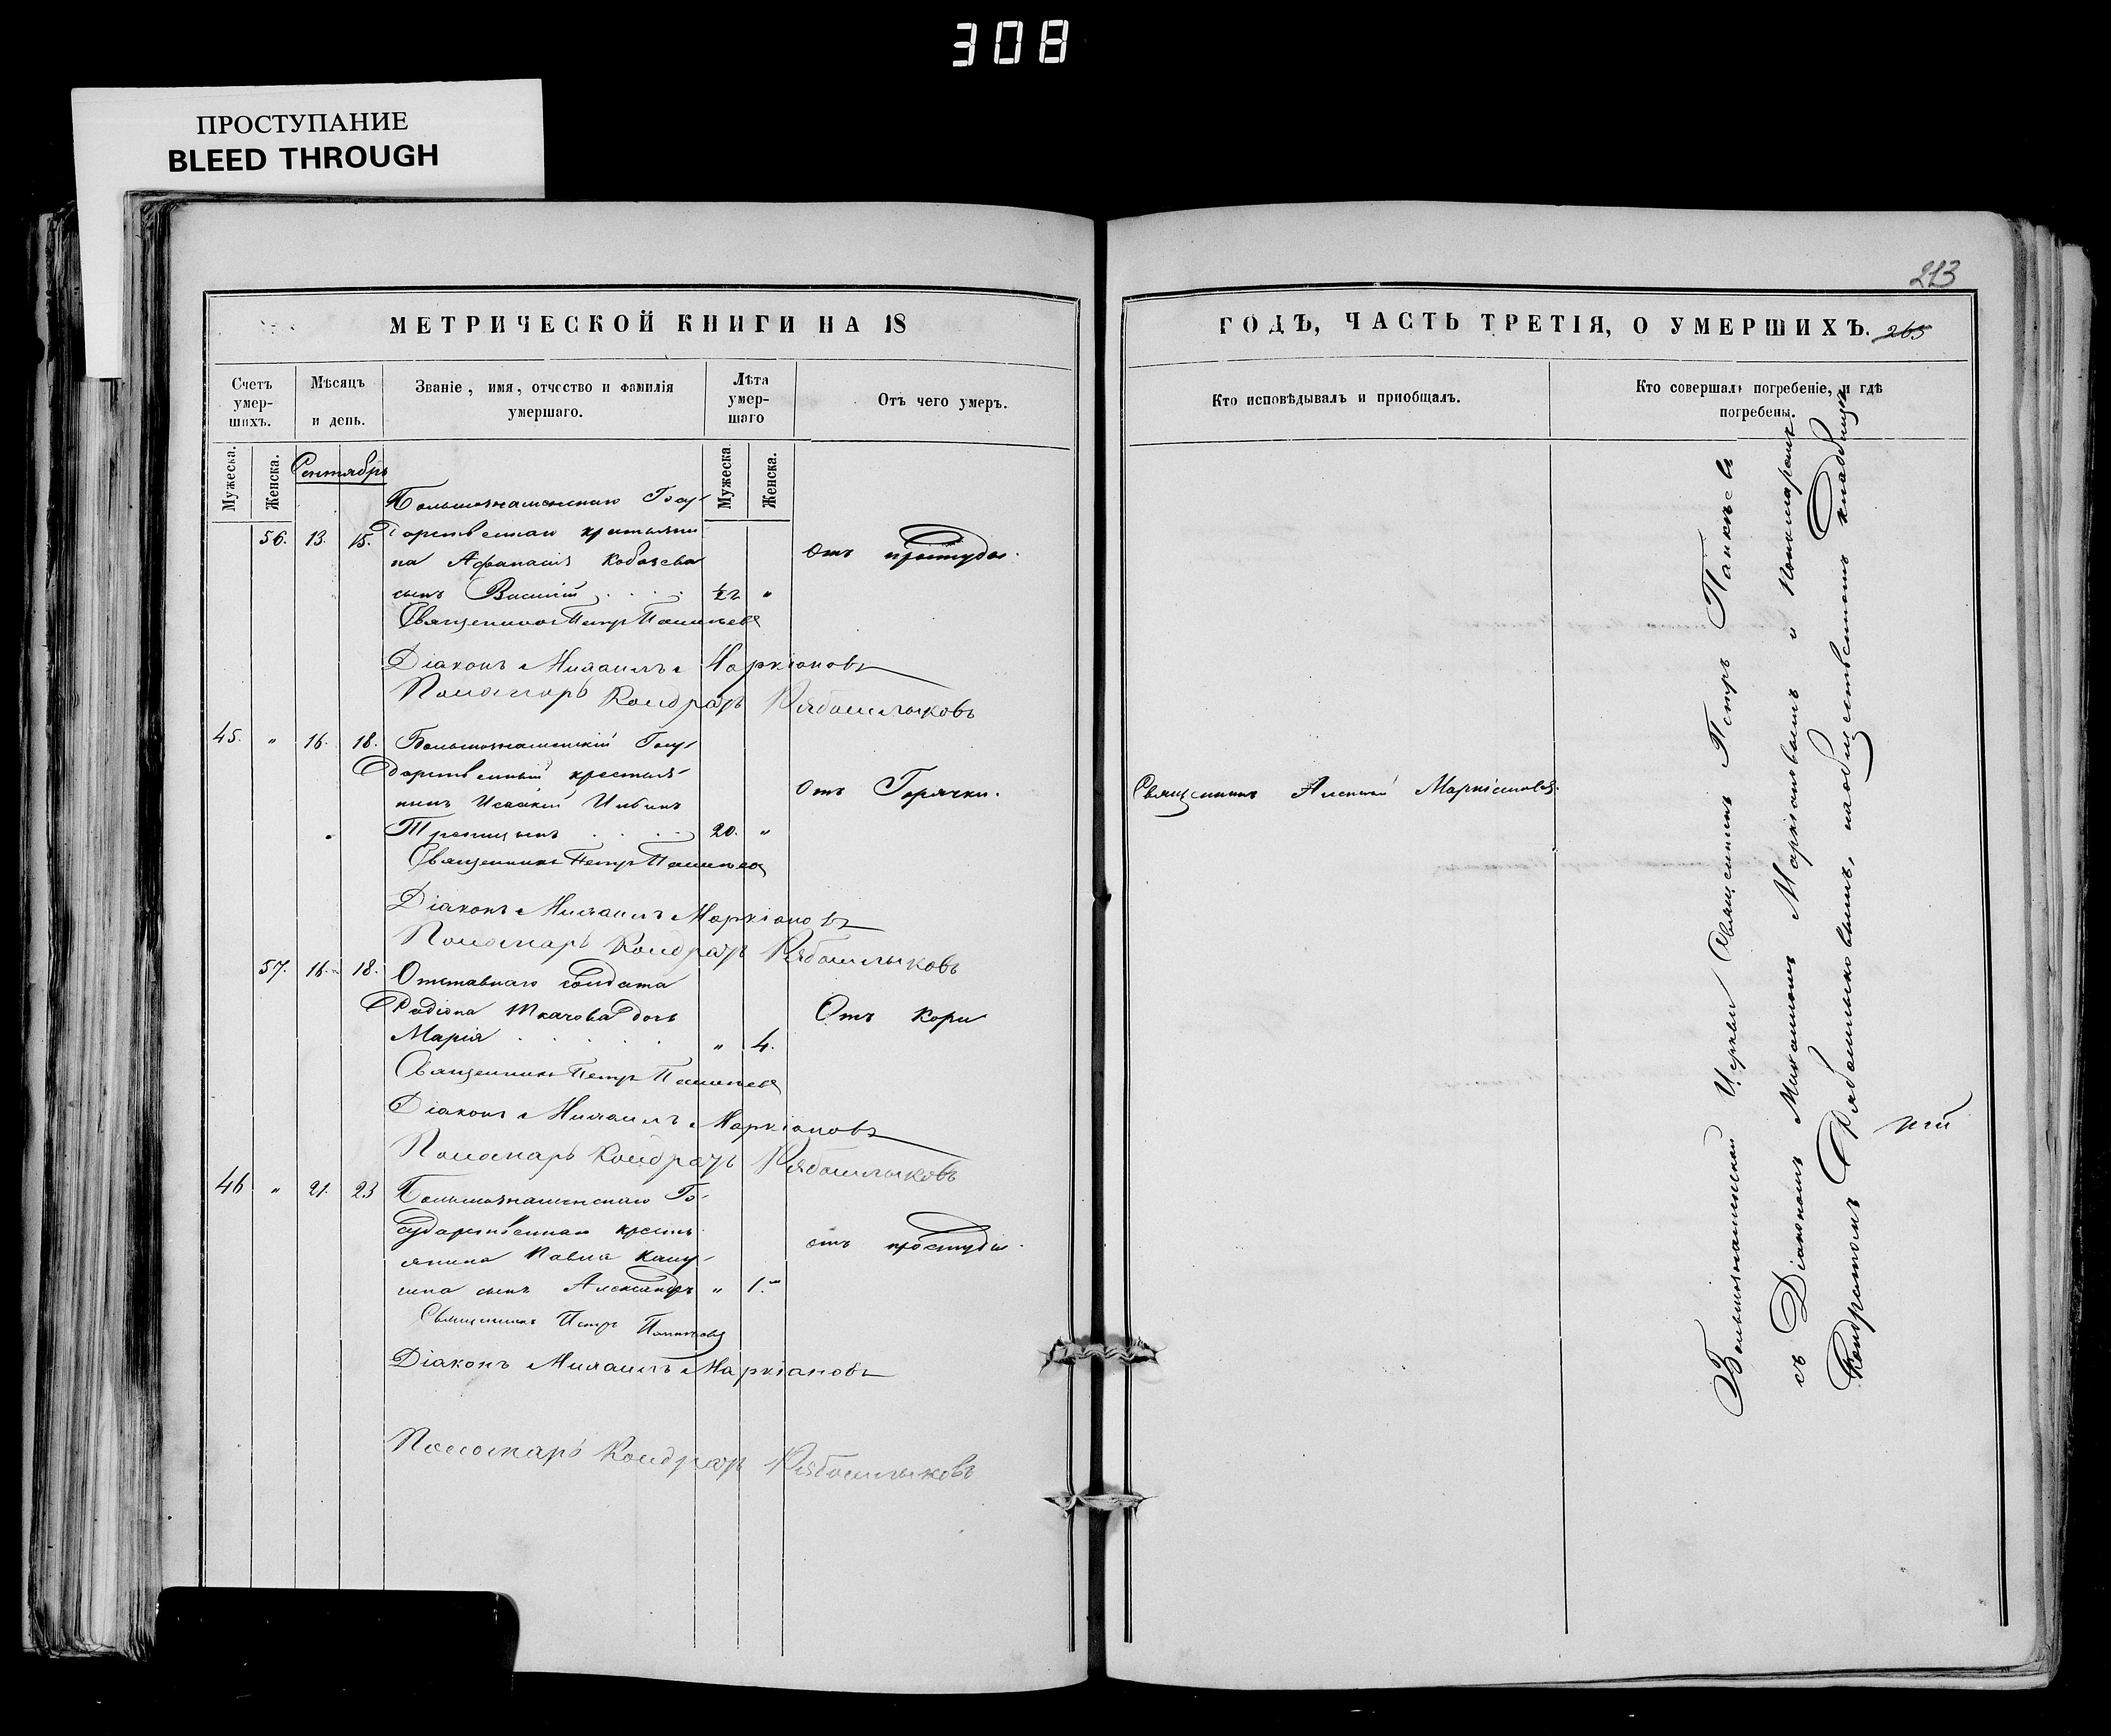 308
ПРОСТУПАНИЕ
BLEED THROUGH
МЕТРИЧЕСКОЙ КНИГИ НА 18
Счетъ умер-шихъ.
Мѣсяцъ и день.
Званіе, имя, отчество и фамилія умершаго.
Лѣта умер-шаго
Отъ чего умеръ.
Мужеска.
Женска.
Сентябрь
Мужеска
Женска.
Большознаменскаго Госу-
56. 13. 15. дарственнаго крестьяни
на Афанасія Кобзева Отъ простуды.
сынъ Василій . . . ½ "
Священникъ Петръ
Діаконъ Михаилъ Маркіановъ
Пономарь Кондратъ Рябошлыковъ
45. " 16. 18. Большознаменскій Госу-
дарственный крестья-
нинъ Исаакій Ильинъ Отъ Горячки.
. . . 20. "
Священникъ Петръ
Діаконъ Михаилъ Маркіановъ
Пономарь Кондратъ Рябошлыковъ
57. 16. 18. Отставнаго солдата
Радіона Ткачова дочь Отъ кори
Марія . . . . . " 4.
Священникъ Петръ
Діаконъ Михаилъ Маркіановъ
Пономарь Кондратъ Рябошлыковъ
46 " 21. 23 Большознаменскаго Го-
сударственнаго кресть
янина Павла отъ простуды.
сынъ Александръ " 1. "
Священникъ Петръ
Діаконъ Михаилъ Маркіановъ
Пономарь Кондратъ Рябошлыковъ
213
ГОДЪ, ЧАСТЬ ТРЕТІЯ, О УМЕРШИХЪ. 265
Кто исповѣдывалъ и пріобщалъ.
Кто совершалъ погребеніе, и гдѣ погребены.
Священникъ Алексій Маркіановъ.
Большознаменской Церкви Священникъ Петръ
съ Діакономъ Михаиломъ Маркіановымъ и Пономаремъ
Кондратомъ Рябошлыковымъ, на общественномъ кладбищѣ